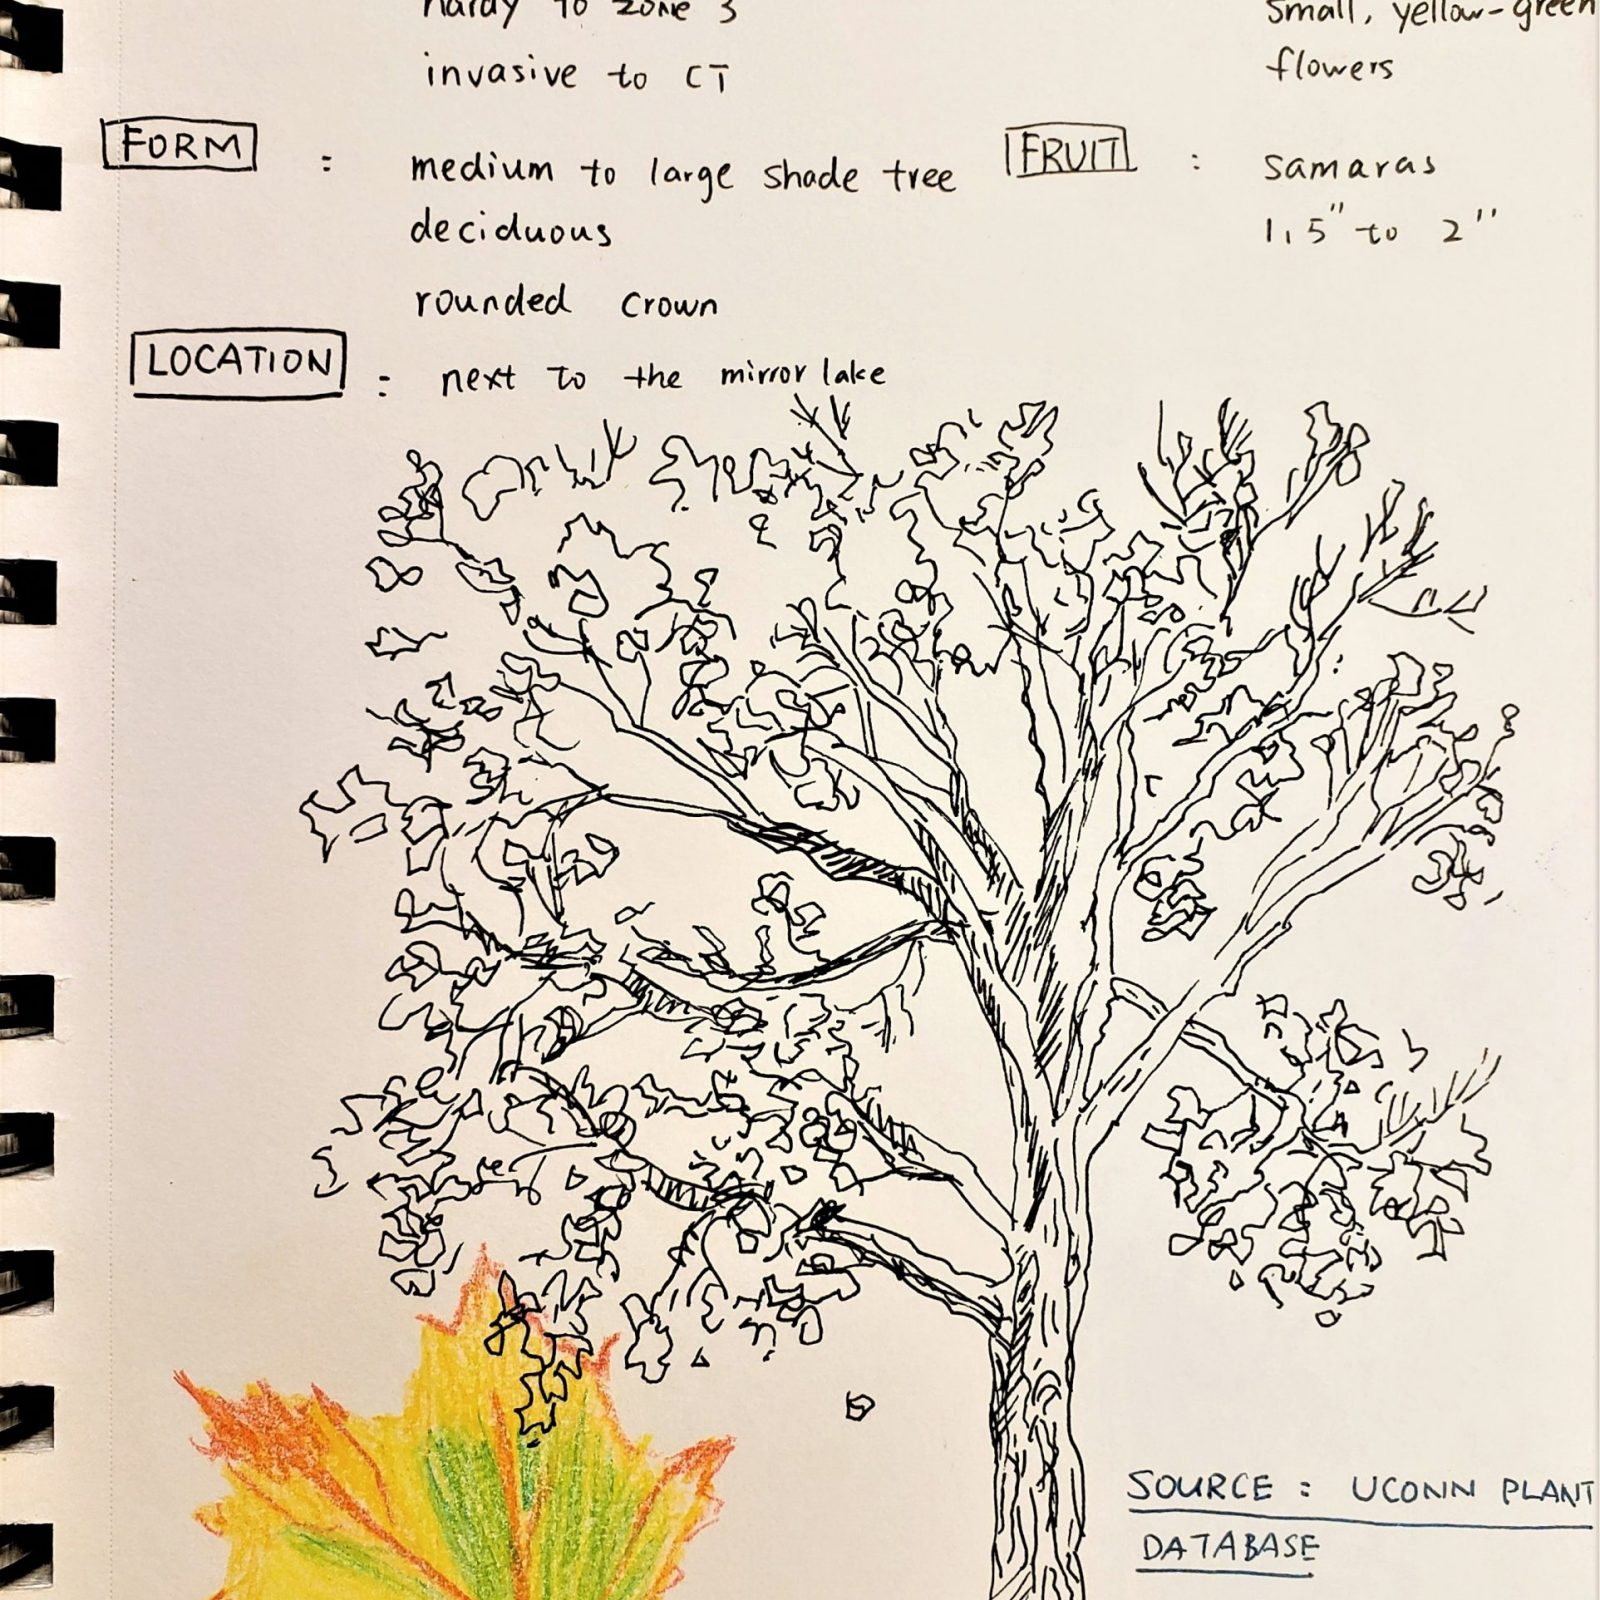 hardy to zone 3
invasive to CT
FORM : medium to large shade tree
deciduous
rounded crown
LOCATION : next to the mirror lake
small, yellow-green
flowers
FRUIT : samaras
1.5" to 2"
SOURCE : UCONN PLANT
DATABASE